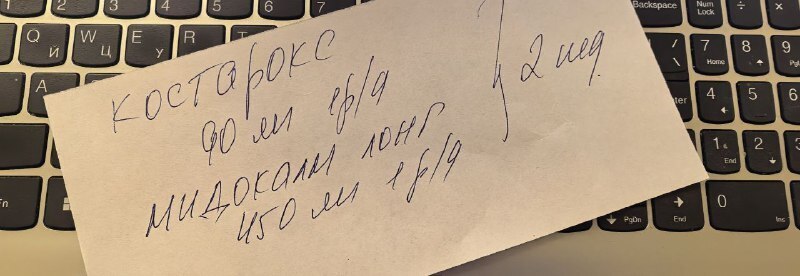 Backspace
Num Lock ÷ ×
Q W E R
Й Ц У
A
7 8 9
Home
4
1 2 3
End
0
PgDn End
КОСТАРОКС
90 мг 1р/д
МИДОКАЛМ ЛОНГ
450 мг 1р/д
2 нед.